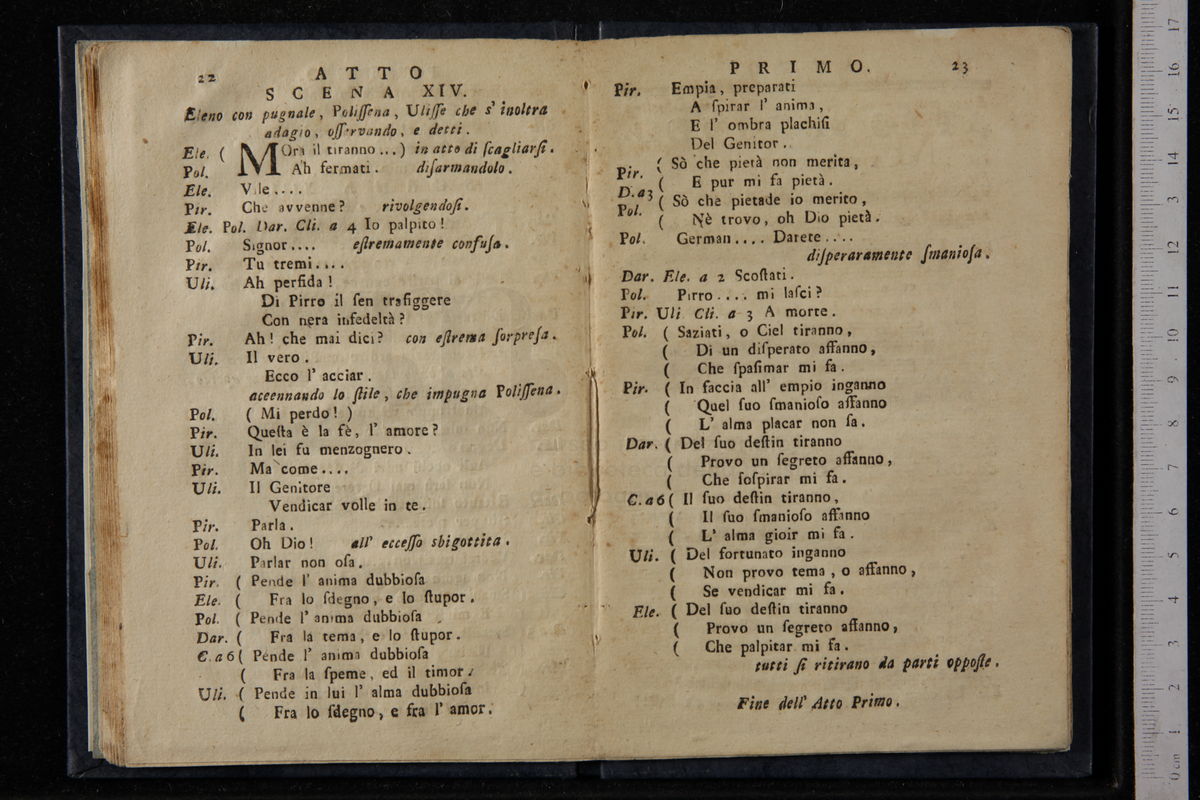 22
ATTO
SCENA XIV.
Eleno con pugnale, Poliſſena, Uliſſe che s' inoltra
adagio, oſſervando, e detti.
Ele. ( MOra il tiranno...) in atto di ſcagliarſi.
Pol. Ah fermati. diſarmandolo.
Ele. Vile....
Pir. Che avvenne? rivolgendoſi.
Ele. Pol. Dar. Cli. a 4 Io palpito!
Pol. Signor.... eſtremamente confuſa.
Pir. Tu tremi....
Uli. Ah perfida!
Di Pirro il ſen trafiggere
Con nera infedeltà?
Pir. Ah! che mai dici? con eſtrema ſorpreſa.
Uli. Il vero.
Ecco l' acciar.
aceennando lo ſtile, che impugna Poliſſena.
Pol. ( Mi perdo! )
Pir. Queſta è la fè, l' amore?
Uli. In lei fu menzognero.
Pir. Ma come....
Uli. Il Genitore
Vendicar volle in te.
Pir. Parla.
Pol. Oh Dio! all' ecceſſo sbigottita.
Uli. Parlar non oſa.
Pir. ( Pende l' anima dubbioſa
Ele. ( Fra lo ſdegno, e lo ſtupor.
Pol. ( Pende l' anima dubbioſa
Dar. ( Fra la tema, e lo ſtupor.
C. a 6 ( Pende l' anima dubbioſa
( Fra la ſpeme, ed il timor.
Uli. ( Pende in lui l' alma dubbioſa
( Fra lo ſdegno, e fra l' amor.
PRIMO. 23
Pir. Empia, preparati
A ſpirar l' anima,
E l' ombra plachiſi
Del Genitor.
Pir. ( Sò che pietà non merita,
D. a 3 ( E pur mi fa pietà.
Pol. ( Sò che pietade io merito,
( Nè trovo, oh Dio pietà.
Pol. German.... Darete....
diſperaramente ſmanioſa.
Dar. Ele. a 2 Scoſtati.
Pol. Pirro.... mi laſci?
Pir. Uli. Cli. a 3 A morte.
Pol. ( Saziati, o Ciel tiranno,
( Di un diſperato affanno,
( Che ſpaſimar mi fa.
Pir. ( In faccia all' empio inganno
( Quel ſuo ſmanioſo affanno
( L' alma placar non ſa.
Dar. ( Del ſuo deſtin tiranno
( Provo un ſegreto affanno,
( Che ſoſpirar mi fa.
C. a 6 ( Il ſuo deſtin tiranno,
( Il ſuo ſmanioſo affanno
( L' alma gioir mi fa.
Uli. ( Del fortunato inganno
( Non provo tema, o affanno,
( Se vendicar mi fa.
Ele. ( Del ſuo deſtin tiranno
( Provo un ſegreto affanno,
( Che palpitar mi fa.
tutti ſi ritirano da parti oppoſte.
Fine dell' Atto Primo.
0 cm 1 2 3 4 5 6 7 8 9 10 11 12 13 14 15 16 17